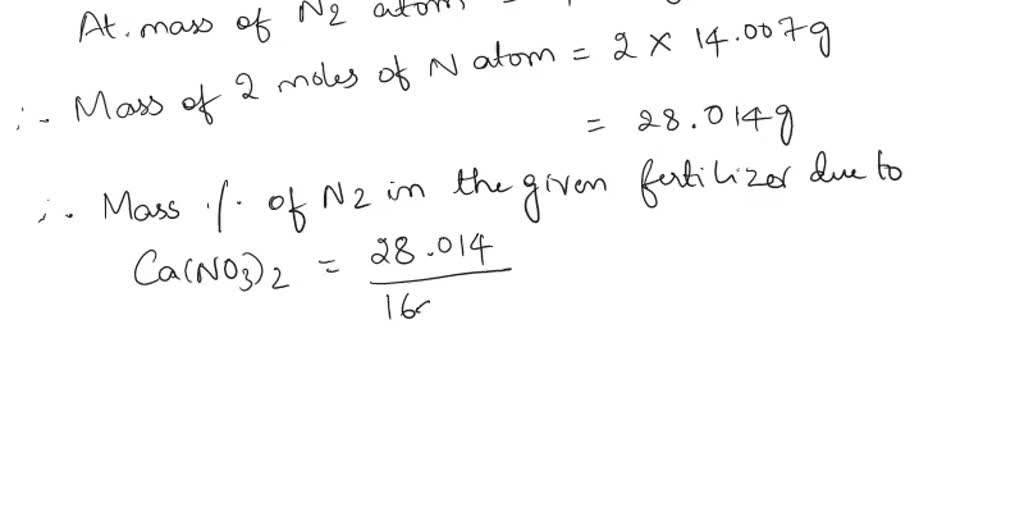 At. mass of N2 atom
∴ Mass of 2 moles of N atom = 2 × 14.007g
= 28.014g
∴ Mass % of N2 in the given fertilizer due to
Ca(NO3)2 = 28.014
16